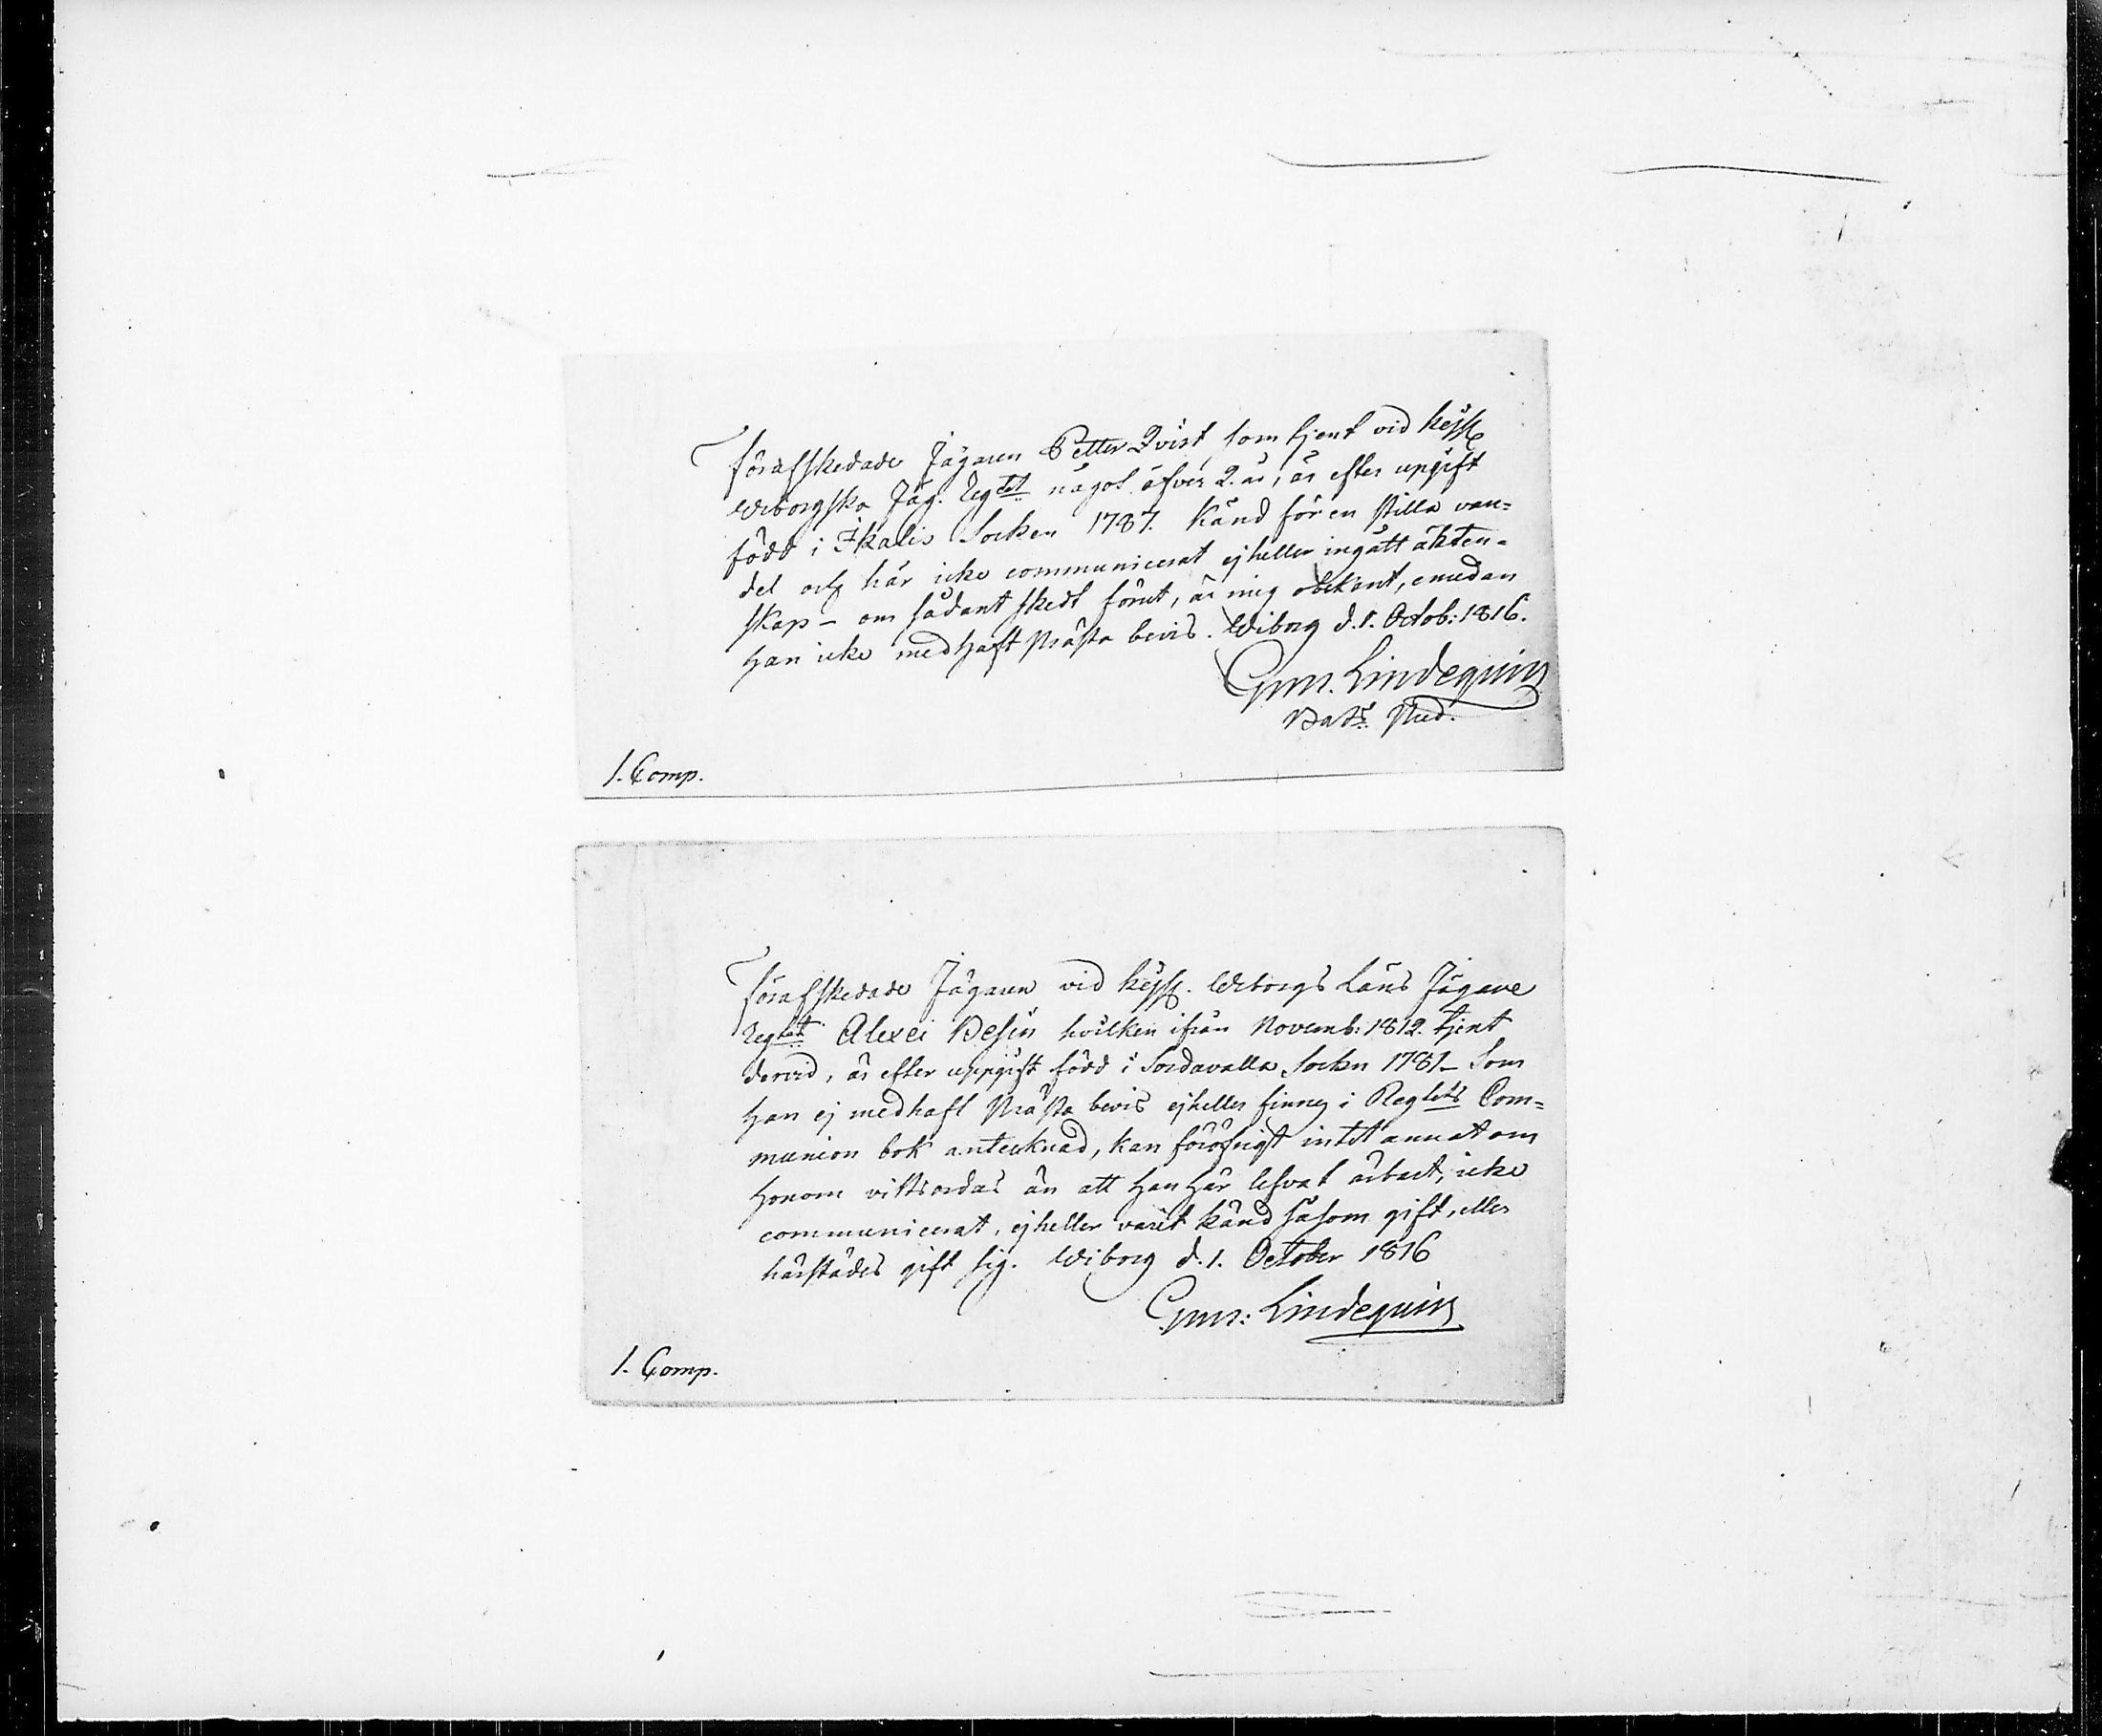 Förafskedade Jägaren Petter Qvist som tjent vid Kejsle
Wiborgska Jäg. Regtet något öfver 2. år, är efter upgift
född i Ikalis Socken 1787. Känd för en stilla van=
del och här icke communicerat ejheller ingått äkten=
skap – om sådant skedt förut, är mig obekant, emedan
han icke medhaft Prästa bevis. Wiborg d. 1. Octob: 1816.
Gmr. Lindequist
Bats Pred.
1. Comp.
Förafskedade Jägaren vid Kejsl. Wiborgs Läns Jägare
Regtet Alexei Besin hvilken ifrån Novemb: 1812 tjent
dervid, är efter uppgift född i Sordavalla Sockn 1781 – Som
han ej medhaft Prästa bevis ejheller finnes i Regtets Com=
munion bok antecknad, kan föröfrigt intet annat om
honom vittsordas än att han här lefvat ärbart, icke
communicerat, ejheller varit känd såsom gift, eller
härstädes gift sig. Wiborg d. 1. October 1816
Gmr: Lindequist
1. Comp.